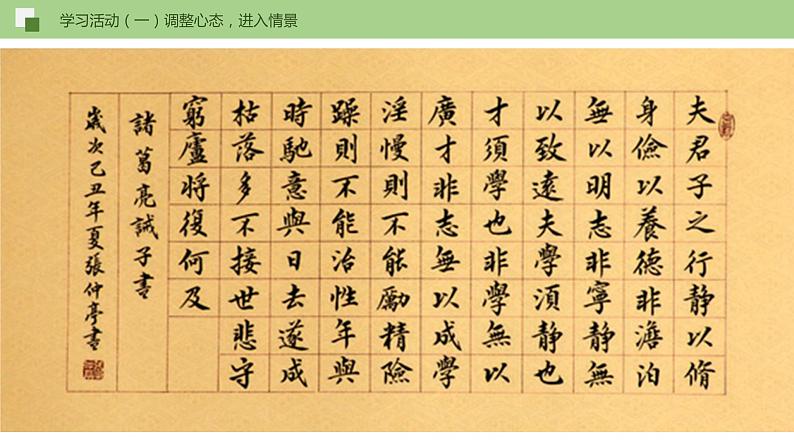 学习活动（一）调整心态，进入情景
夫君子之行静以脩
身儉以養德非澹泊
無以明志非寧静無
以致遠夫學須静也
才須學也非學無以
廣才非志無以成學
淫慢則不能勵精險
躁則不能治性年與
時馳意與日去遂成
枯落多不接世悲守
窮廬將復何及
諸葛亮誡子書
歲次己丑年夏張仲亭書